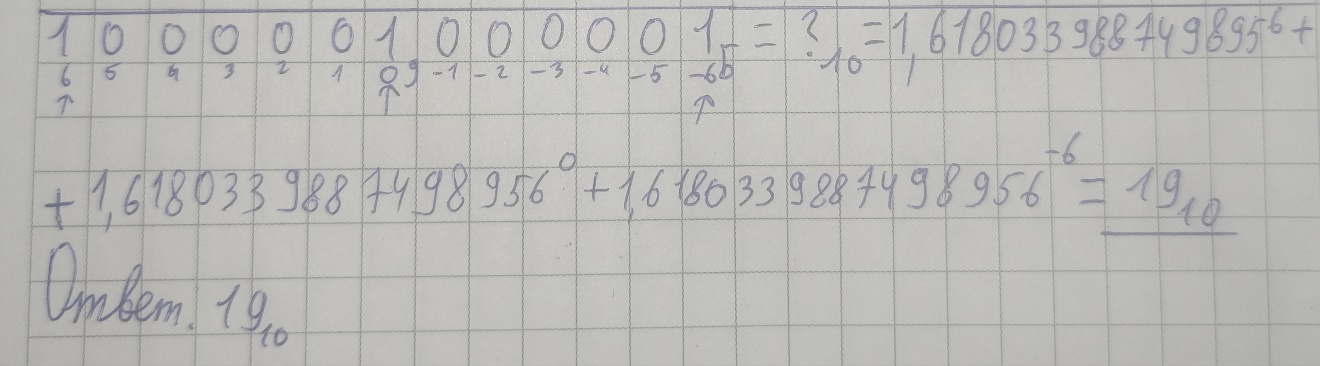 1 0 0 0 0 0 1 0 0 0 0 0 1Б = ?10 = 1,618033988749895⁶ +
6 5 4 3 2 1 0 -1 -2 -3 -4 -5 -6
↑ ↑ ↑
+ 1,6180339887498956⁰ + 1,6180339887498956⁻⁶ = 19₁₀
Ответ. 19₁₀